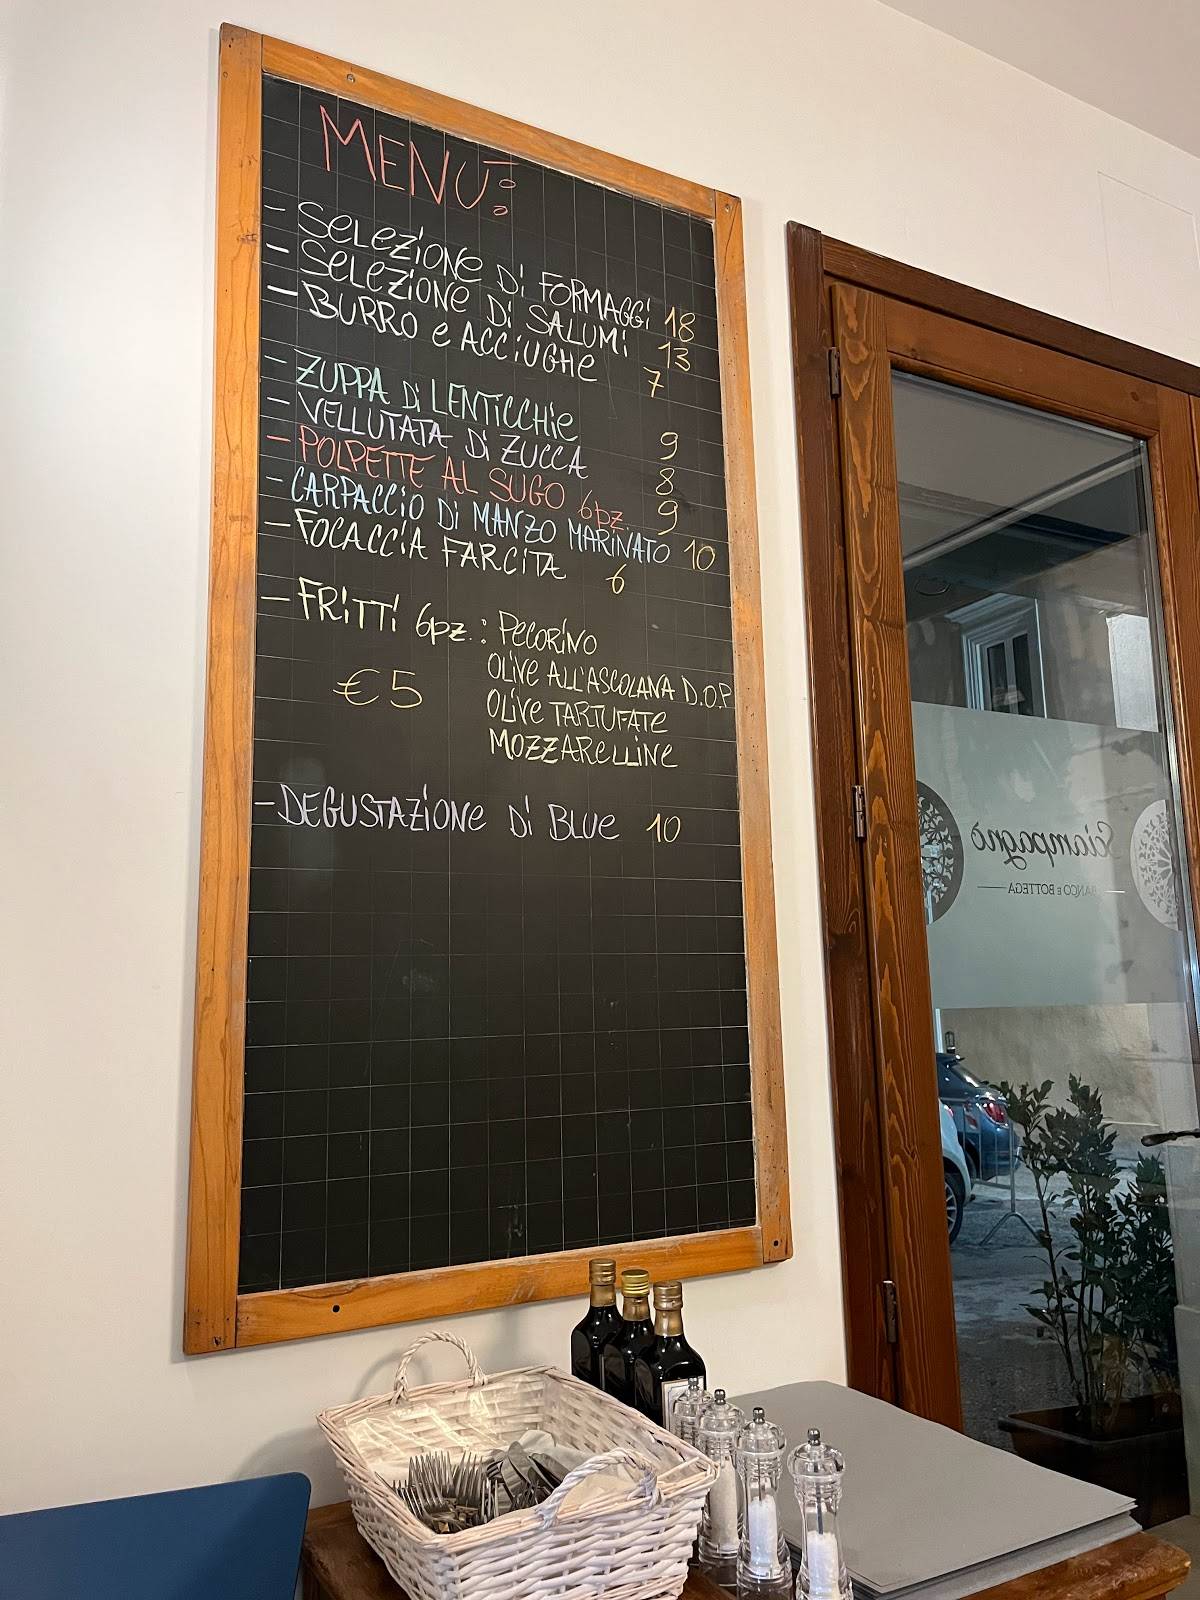 MENÙ:
- SELEZIONE DI FORMAGGI 18
- SELEZIONE DI SALUMI 13
- BURRO e ACCIUGHE 7
- ZUPPA DI LENTICCHIE 9
- VELLUTATA DI ZUCCA 8
- POLPETTE AL SUGO 6pz. 9
- CARPACCIO DI MANZO MARINATO 10
- FOCACCIA FARCITA 6
- FRITTI 6pz.: PECORINO
OLIVE ALL'ASCOLANA D.O.P
€5
OLIVE TARTUFATE
MOZZARELLINE
- DEGUSTAZIONE DI BLUE 10
Sciampagnò
BANCO E BOTTEGA